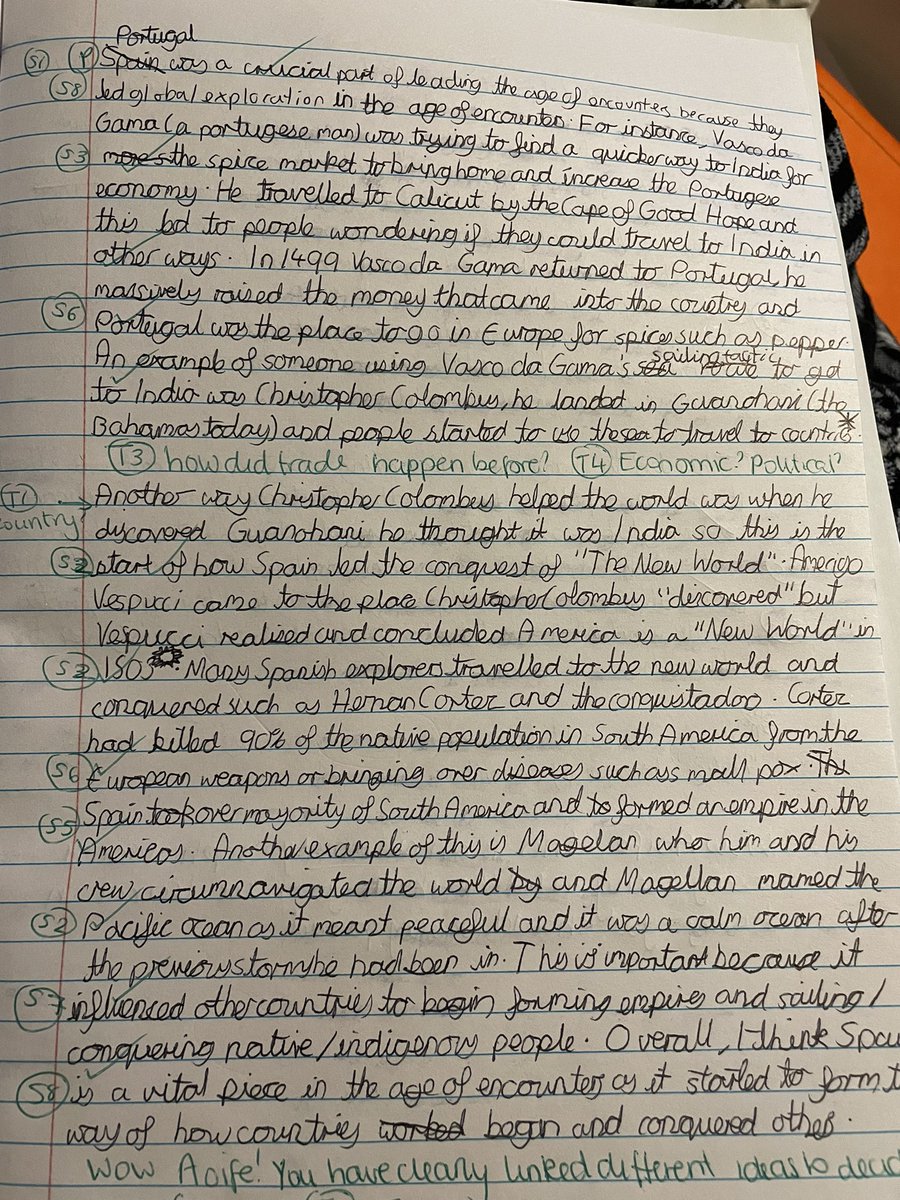 Portugal
S1 (P) Spain was a crucial part of leading the age of encounter because they
S8 led global exploration in the age of encounter. For instance, Vasco da
Gama (a portugese man) was trying to find a quicker way to India for
S3 the spice market to bring home and increase the Portugese
economy. He travelled to Calicut by the Cape of Good Hope and
this led to people wondering if they could travel to India in
other ways. In 1499 Vasco da Gama returned to Portugal, he
massively raised the money that came into the country and
S6 Portugal was the place to go in Europe for spices such as pepper.
sailing tactic
An example of someone using Vasco da Gama's to get
to India was Christopher Colombus, he landed in Guanahani (the
Bahamas today) and people started to use the sea to travel to countries.
T3 how did trade happen before? T4 Economic? Political?
T1 Another way Christopher Colombus helped the world was when he
country? discovered Guanahani he thought it was India so this is the
S2 start of how Spain led the conquest of "The New World". Amerigo
Vespucci came to the place Christopher Colombus "discovered" but
Vespucci realised and concluded America is a "New World" in
S3 1503. Many Spanish explorers travelled to the new world and
conquered such as Hernan Cortez and the conquistador. Cortez
had killed 90% of the native population in South America from the
S6 European weapons or bringing over diseases such as small pox. The
S5 Spain took over mayority of South America and to formed an empire in the
Americas. Another example of this is Magelan who him and his
crew circumnavigated the world by and Magellan mamed the
S2 Pacific ocean as it meant peaceful and it was a calm ocean after
the previous storm he had been in. This is important because it
S7 influenced other countries to begin forming empires and sailing/
conquering native/indigenous people. Overall, I think Spai
S8 is a vital piece in the age of encounter as it started to form t
way of how countries worked began and conquered others.
Wow Aoife! You have clearly linked different ideas to decid